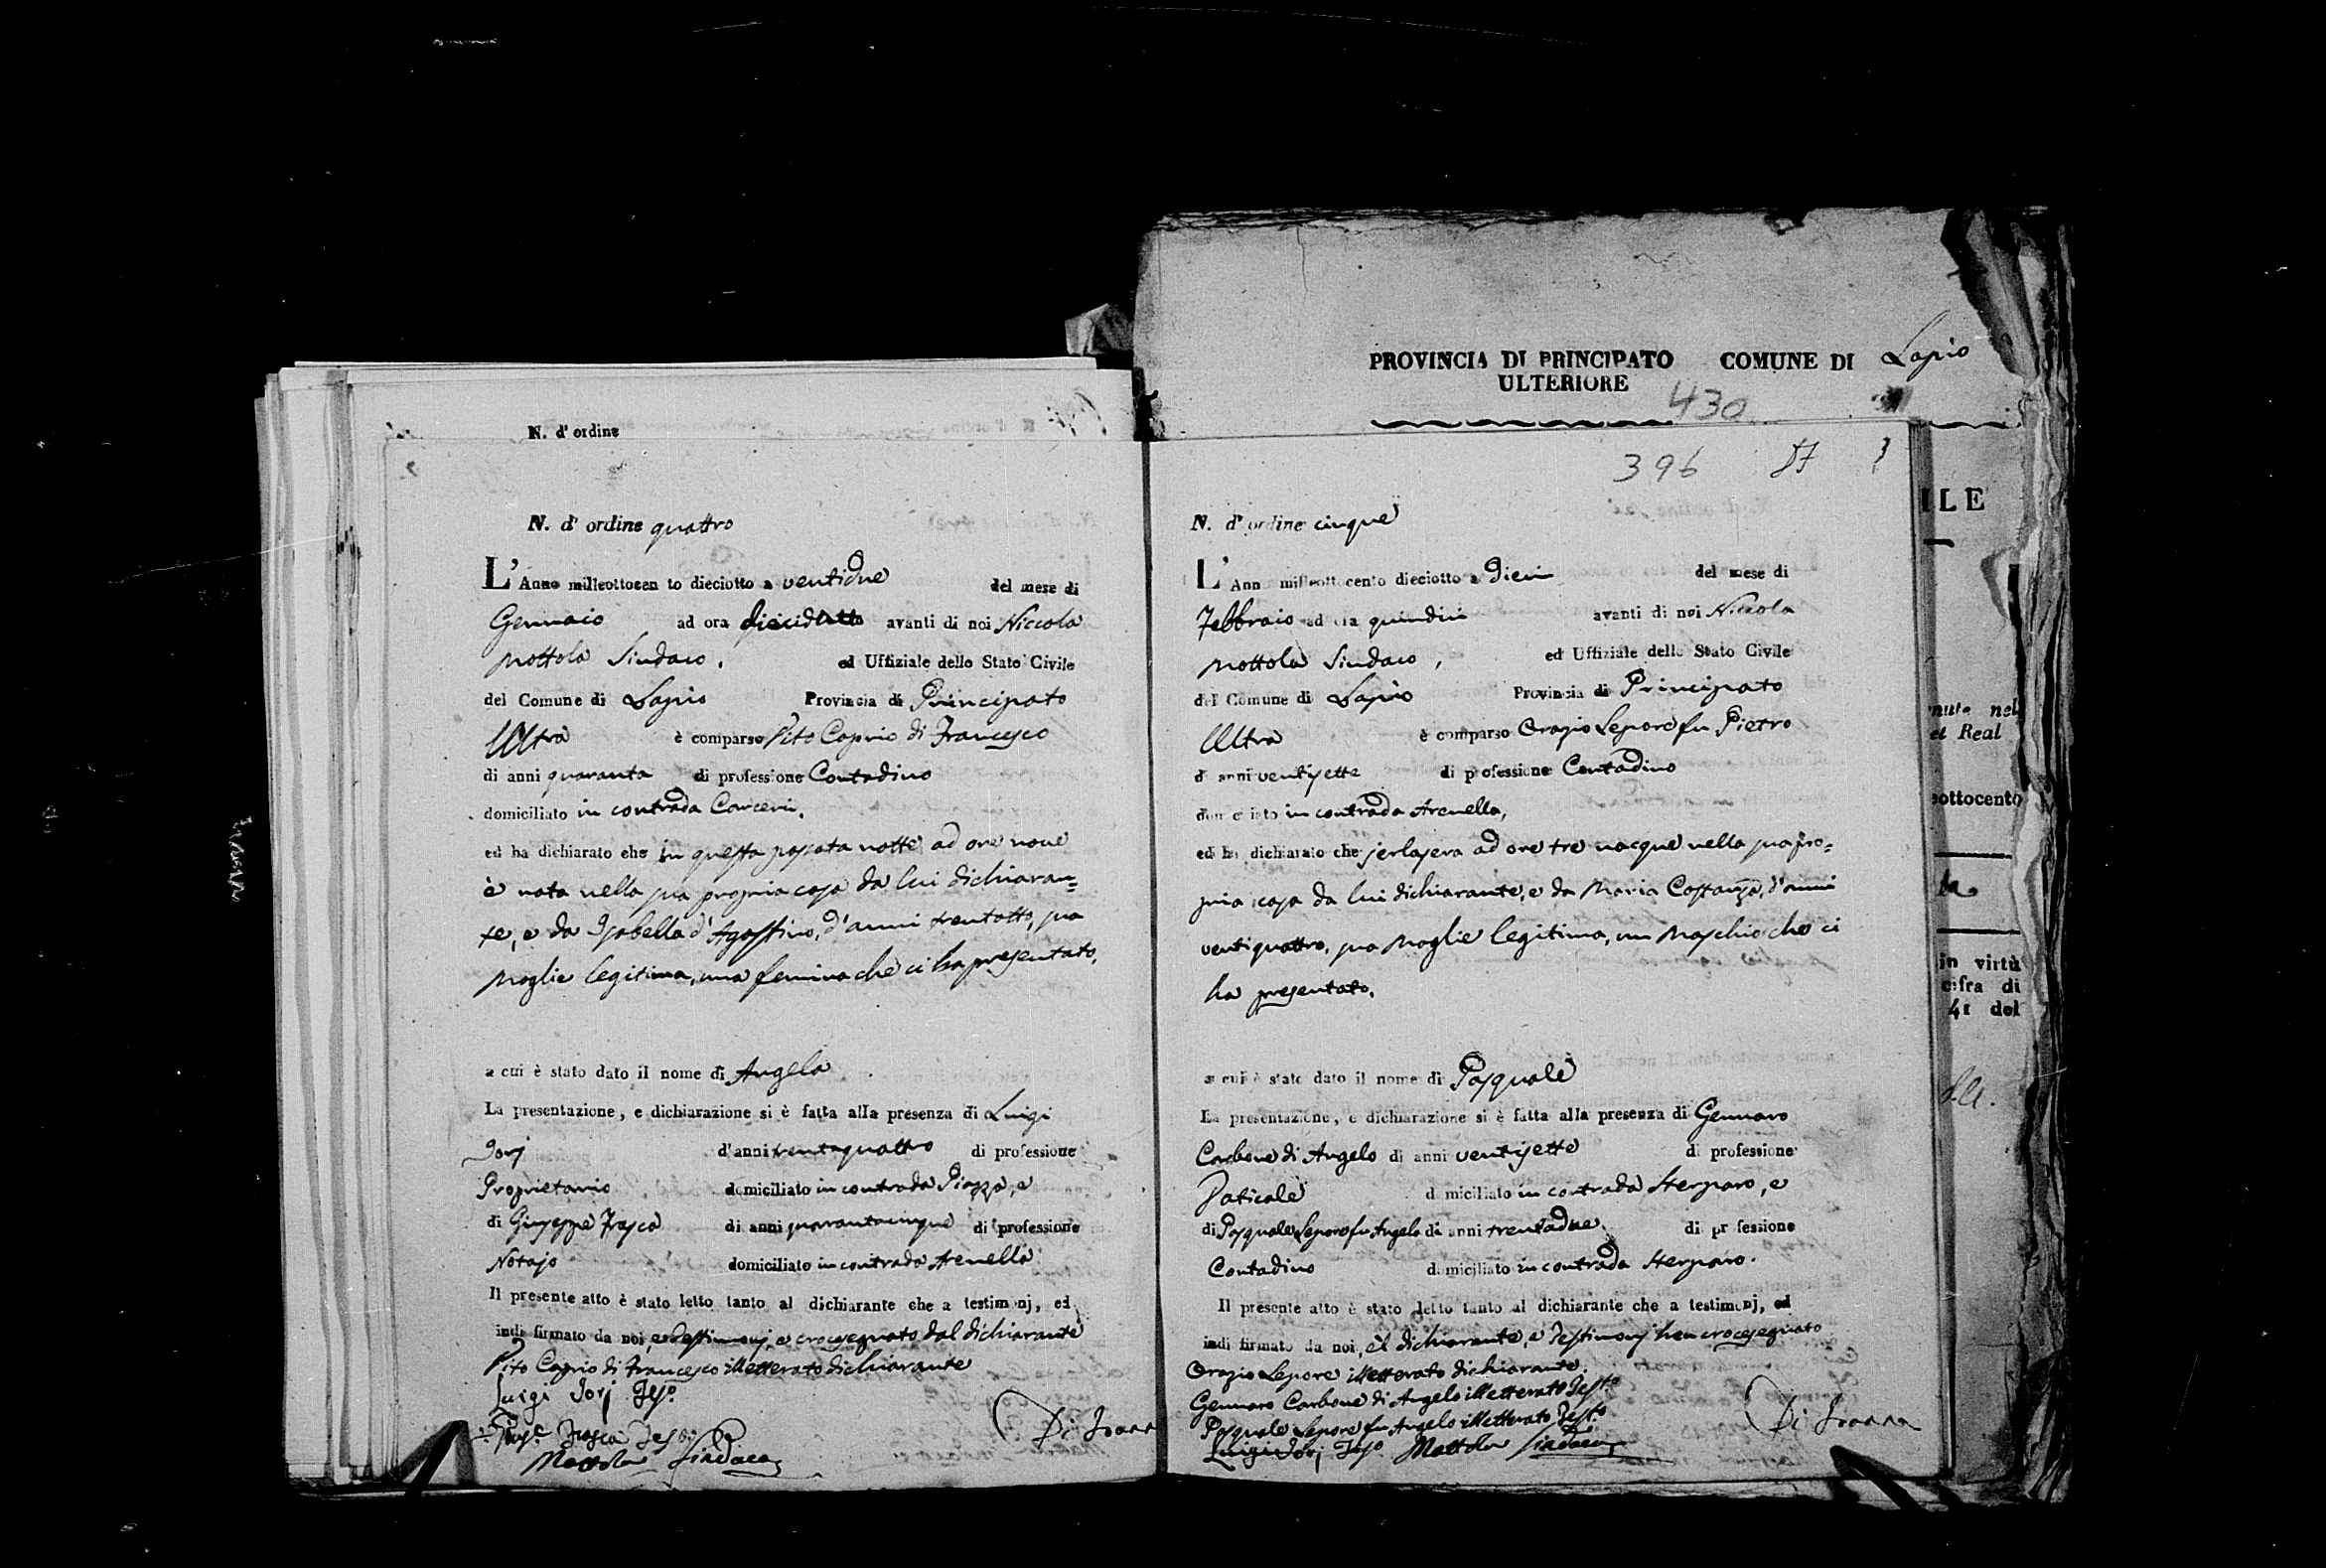 PROVINCIA DI PRINCIPATO COMUNE DI Lapio
ULTERIORE
430
N. d' ordine
N. d' ordine quattro
L' Anno milleottocen to dieciotto a ventidue del mese di
Gennaio ad ora avanti di noi Niccola
Mottola Sindaco, ed Uffiziale dello Stato Civile
del Comune di Lapio Provincia di Principato
Ultra è comparso Vito Caprio di Francesco
di anni quaranta di professione Contadino
domiciliato in contrada Carceri,
ed ha dichiarato che in questa passata notte ad ore nove
è nata nella sua propria casa da lui dichiaran=
te, e da Isabella d'Agostino, d'anni trentotto, sua
Moglie legitima, una femina che ci ha presentato,
a cui è stato dato il nome di Angela
La presentazione, e dichiarazione si è fatta alla presenza di Luigi
Iorj d'anni trentaquattro di professione
Proprietario domiciliato in contrada Piazza, e
di Giuseppe Frasca di anni quarantacinque di professione
Notajo domiciliato in contrada Arenella
Il presente atto è stato letto tanto al dichiarante che a testimonj, ed
indi firmato da noi, e testimonj, e crocesegnato dal dichiarante
Vito Caprio di Francesco illetterato dichiarante
Luigi Iorj Tes.o
Gius.e Frasca Tes.o
Mottola Sindaco
Di Ioann
396 87
N. d' ordine cinque
L' Ann milleottocento dieciotto a Dieci del mese di
Febbraio ad ora quindici avanti di noi Niccola
Mottola Sindaco, ed Uffiziale dello Stato Civile
del Comune di Lapio Provincia di Principato
Ultra è comparso Orazio Lepore fu Pietro
di anni ventisette di professione Contadino
domiciliato in contrada Arenella,
ed ha dichiarato che jerlasera ad ore tre nacque nella sua pro=
pria casa da lui dichiarante, e da Maria Costanza, d'anni
ventiquattro, sua Moglie legitima, un Maschio che ci
ha presentato,
a cui è stato dato il nome di Pasquale
La presentazione, e dichiarazione si è fatta alla presenza di Gennaro
Carbone di Angelo di anni ventisette di professione
Vaticale domiciliato in contrada Sterparo, e
di Pasquale Lepore fu Angelo di anni trentadue di professione
Contadino domiciliato in contrada Sterparo.
Il presente atto è stato letto tanto al dichiarante che a testimonj, ed
indi firmato da noi, e'l dichiarante, e Testimonj han crocesegnato
Orazio Lepore illetterato dichiarante
Gennaro Carbone di Angelo illetterato Test.o
Pasquale Lepore fu Angelo illetterato Test.o
Luigi Iorj Tes.o Mottola Sindaco
Di Ioanna
ILE
nute nel
el Real
sottocento
la
in virtù
cifra di
41 del